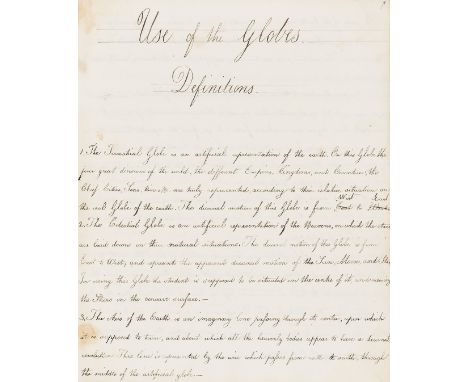 Use of the Globes
Definitions.
1. The Terrestrial Globe is an artificial representation of the earth. On this Globe the
four great divisions of the world, the different Empires, Kingdoms, and Countries; the
Chief Cities, Seas, Rivers, &c are truly represented, according to their relative situation on
the real Globe of the earth. The diurnal motion of this Globe is from West to East
2. The Celestial Globe is an artificial representation of the Heavens, on which the stars
are laid down in their natural situations. The diurnal motion of this Globe is from
East to West, and represents the apparent diurnal motion of the Sun, Moon, and
In using this Globe the student is supposed to be situated in the centre of it, and viewing
the Stars in the concave surface.—
3. The Axis of the Earth is an imaginary line passing through its center, upon which
it is supposed to turn, and about which all the heavenly bodies appear to have a diurnal
revolution. This line is represented by the wire which passes from north to south, through
the middle of the artificial globe.—